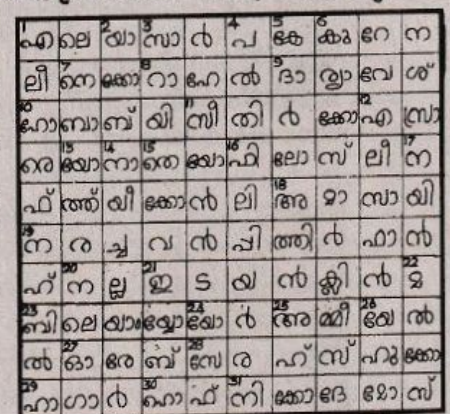 1 എ ലെ 2 യാ 3 സാ ർ 4 പ 5 കേ 6 കൂ റേ ന
ലീ 7 നെ ക്കോ 8 റാ ഹേ ൽ 9 ദാ ര്യാ വേ ശ്
10 ഹോ ബാ ബ് യി 11 സീ തി ർ ക്കോ 12 എ സ്രാ
രെ 13 യോ 14 നാ 15 തെ യോ 16 ഫി ലോ സ് ലീ 17 ന
ഫ് ത്ത് യീ ക്കോ ൻ ലി 18 അ മാ സാ യി
19 ന ര ച്ച വ ൻ പ്പി ത്തി ർ ഫാ ൻ
ഹ് 20 ന ല്ല 21 ഇ ട യ ൻ ക്ലി ൻ 22 മ
23 ബി ലെ യാം യ്യോ 24 യോ ർ 25 അ മ്മീ 26 യേ ൽ
ൽ 27 ഓ രേ ബ് 28 സേ ര ഹ് സ് ഹൂ ക്കോ
29 ഹാ ഗാ ർ 30 ഹൊ ഫ് 31 നി ക്കോ ദേ മോ സ്